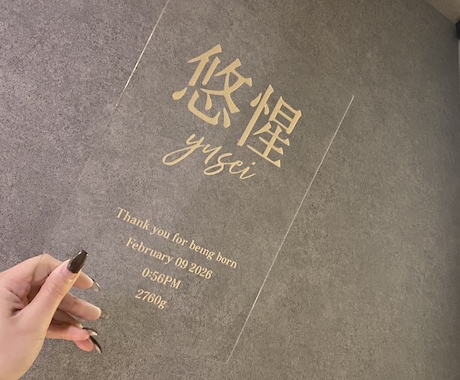 悠惺
yusei
Thank you for being born
February 09 2026
0:56PM
2760g